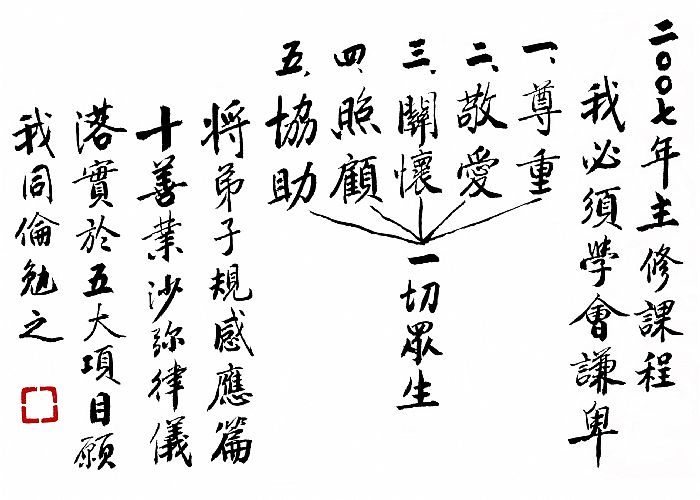 二〇〇七年主修課程
我必須學會謙卑
一、尊重
二、敬愛
三、關懷
四、照顧
五、協助
一切眾生
將弟子規感應篇
十善業沙弥律儀
落實於五大項目願
我同倫勉之